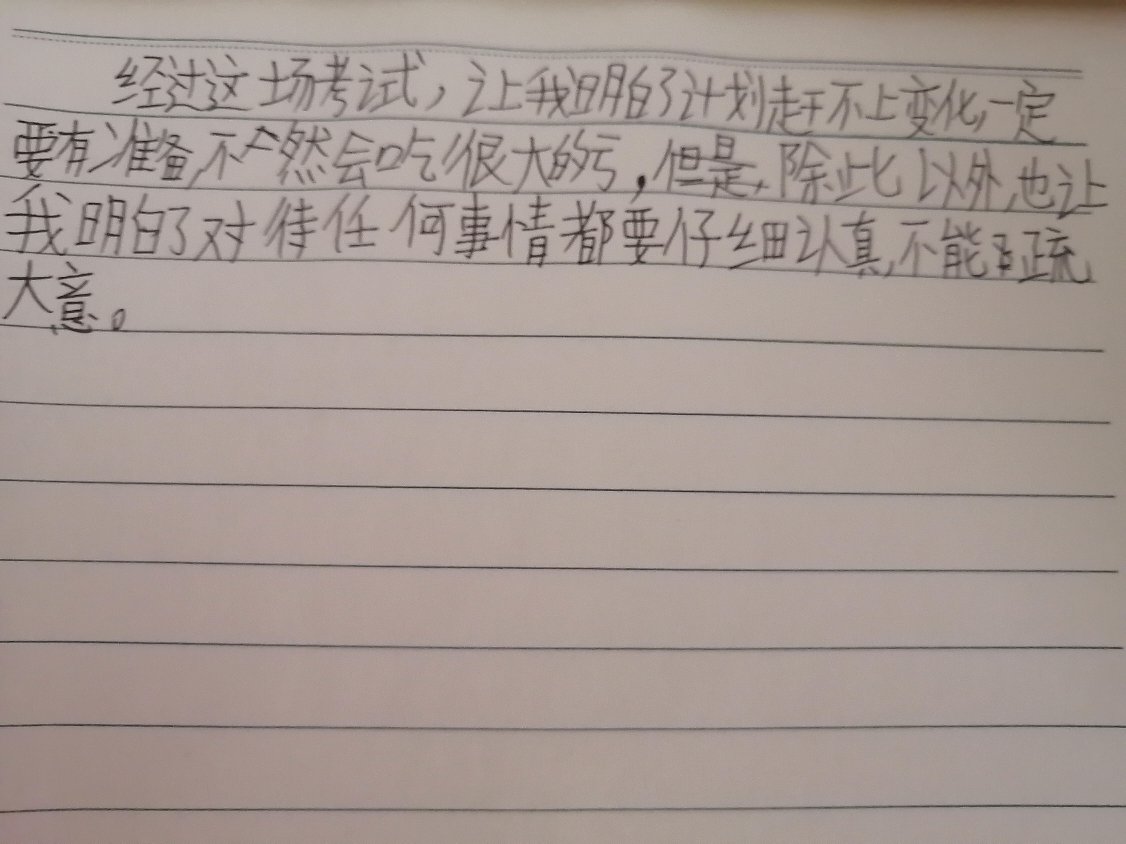 经过这场考试，让我明白了计划赶不上变化，一定
要有准备，不然会吃很大的亏，但是，除此以外，也让
我明白了对待任何事情都要仔细认真，不能疏
大意。